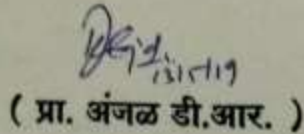 13/5/19
( प्रा. अंजळ डी.आर. )